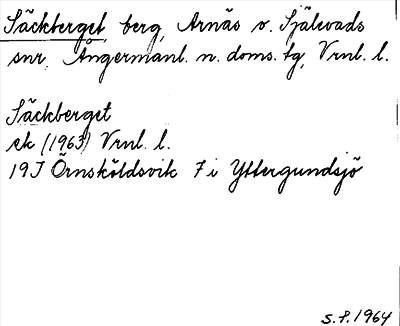 Säckberget berg, Arnäs o. Själevads
snr, Ångermanl. n. doms. tg, Vrnl. l.
Säckberget
ek (1963) Vrnl. l.
19J Örnsköldsvik 7 i Yttergundsjö
s. f. 1964